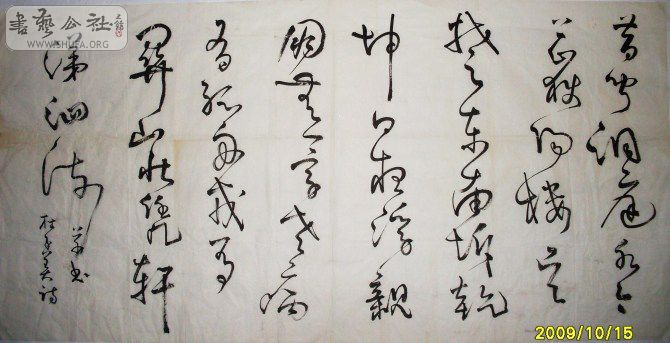 昔聞洞庭水今
上岳陽樓吳
楚東南坼乾
坤日夜浮親
朋無一字老病
有孤舟戎馬
關山北憑軒
涕泗流
草书
杜子美詩
書藝公社
WWW.SHUFA.ORG
2009/10/15